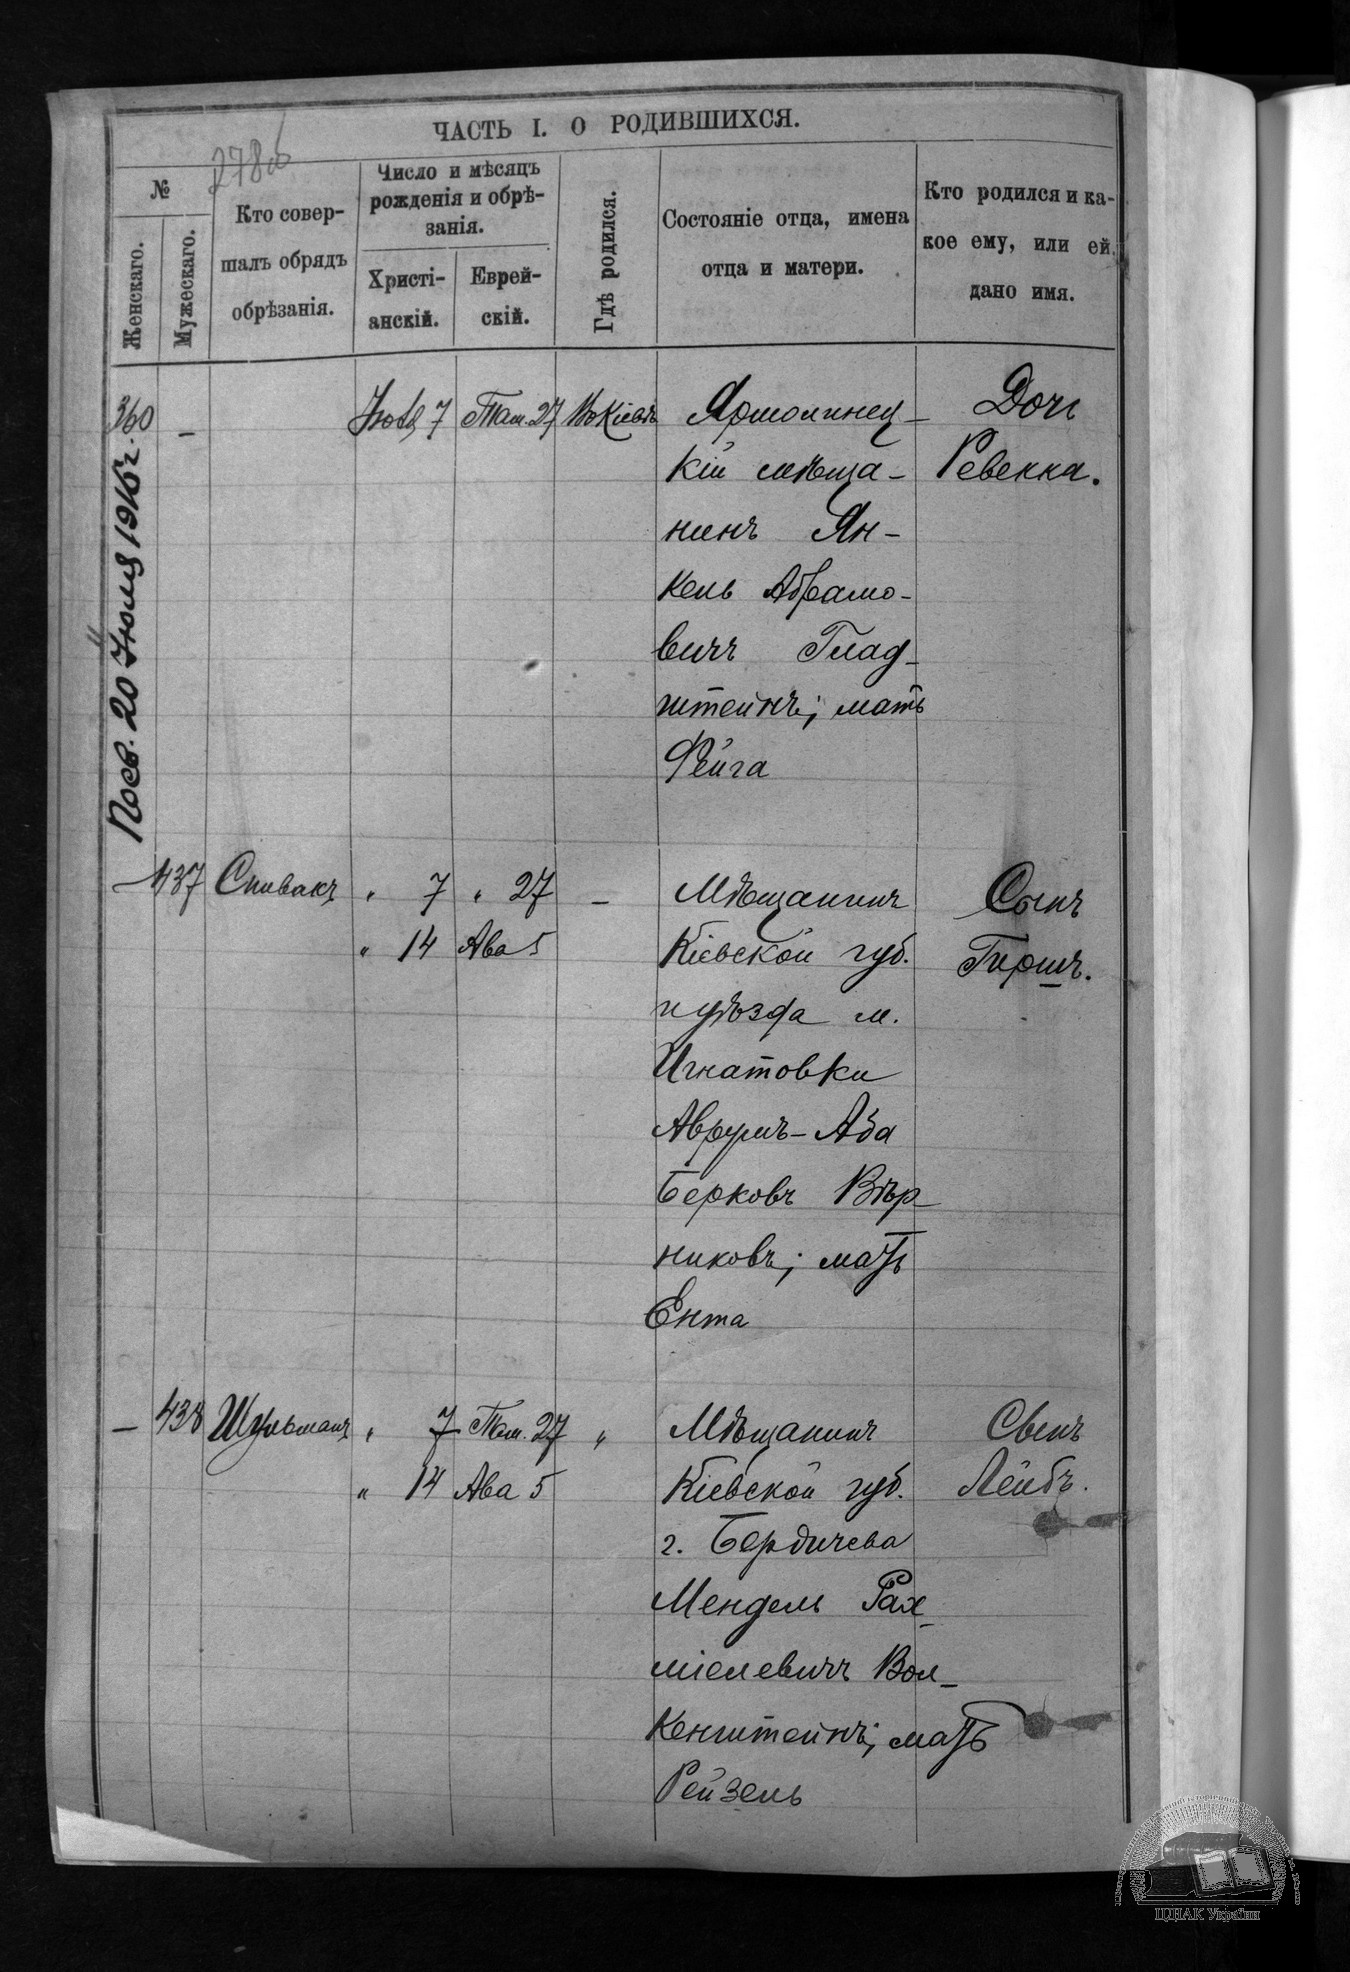 278об
ЧАСТЬ I. О РОДИВШИХСЯ.
№
Женскаго.
Мужескаго.
Кто совер-
шалъ обрядъ
обрѣзанія.
Число и мѣсяцъ
рожденія и обрѣ-
занія.
Христі-
анскій.
Еврей-
скій.
Гдѣ родился.
Состояніе отца, имена
отца и матери.
Кто родился и ка-
кое ему, или ей,
дано имя.
360 – Іюля 7 Там. 27 Въ Кіевѣ
Ярмолинец-
кій мѣща-
нинъ Ян-
кель Абрамо-
вичъ Глад-
штейнъ; мать
Фейга
Дочь
Ревекка.
20 Іюля 1915 г.
– 437 Спивакъ " 7 " 27 –
" 14 Ава 5
Мѣщанинъ
Кіевской губ.
и уѣзда м.
Игнатовки
Аврумъ-Аба
Берковъ Вѣр-
никовъ; мать
Ента
Сынъ
Гиршъ.
– 438 Шульманъ " 7 Там. 27 "
" 14 Ава 5
Мѣщанинъ
Кіевской губ.
г. Бердичева
Мендель Рах-
міелевичъ Вол-
кенштейнъ; мать
Рейзель
Сынъ
Лейбъ.
ЦДІАК України